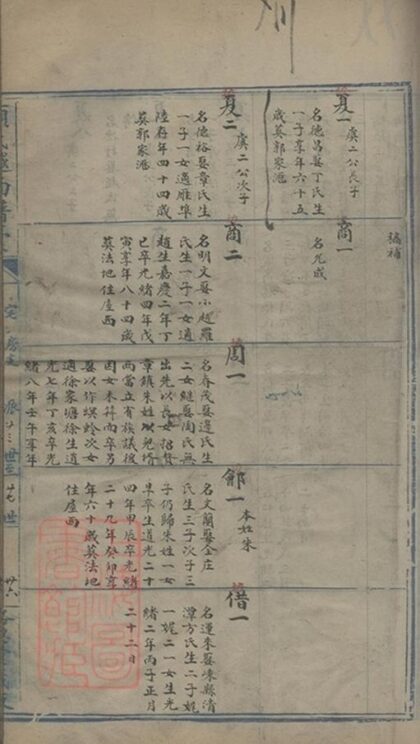 夏一
虞二公長子
名德昌娶丁氏生
一子享年六十五
歲葬郭家
夏二
虞二公次子
名德裕娶章氏生
一子一女適雁埠
陸存年四十四歲
葬郭家
商一
名允成
商二
名明文娶小趙羅
氏生一子一女適
趙生嘉慶二年丁
巳卒光緒四年戊
寅享年八十四歲
葬法地住屋西
周一
名春茂娶邊氏生
二女繼娶周氏無
出先以長女招贅
章鎮朱姓以兒婿
兩當立有族議後
因女未笄而卒乃
娶以作螟蛉次女
適徐家塘徐生道
光七年丁亥卒光
緒八年壬午享年
鄒一
本姓朱
名文蘭娶金庄
氏生三子次子三
子仍歸朱姓一女
早卒生道光二十
四年甲辰卒光緒
二十九年癸卯享
年六十歲葬法地
住屋西
借一
名運來娶嵊縣清
潭方氏生二子妮
一妮二一女生光
緒二年丙子正月
二十二日